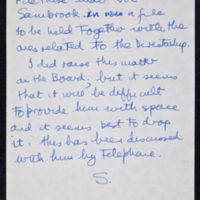 Sambrook in now a file
to be held together with the
ones related to the Directorship.
I did raise this matter
on the Board, but it seems
that it will be difficult
to provide him with space
and it seems best to drop
it, this has been discussed
with him by Telephone.
S.